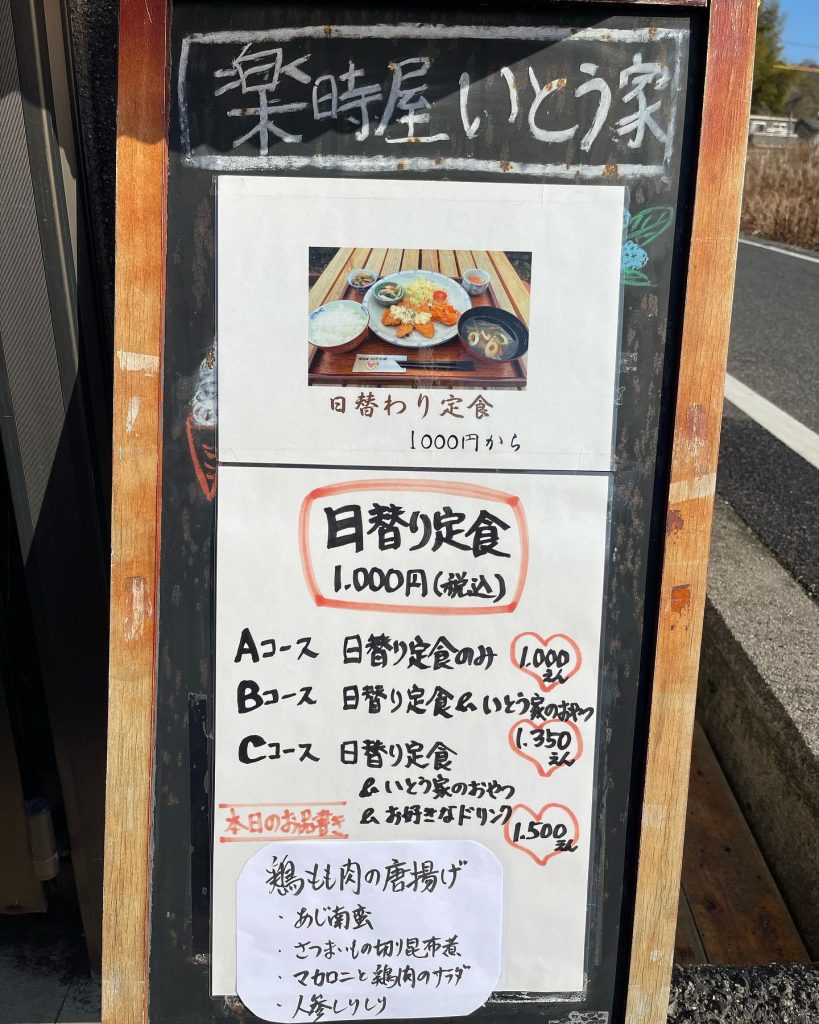 楽時屋いとう家
日替わり定食
1000円から
日替り定食
1.000円(税込)
Aコース 日替り定食のみ 1.000えん
Bコース 日替り定食&いとう家のおやつ
1.350えん
Cコース 日替り定食
&いとう家のおやつ
&お好きなドリンク
1.500えん
本日のお品書き
鶏もも肉の唐揚げ
・あじ南蛮
・さつまいもの切り昆布煮
・マカロニと鶏肉のサラダ
・人参しりしり